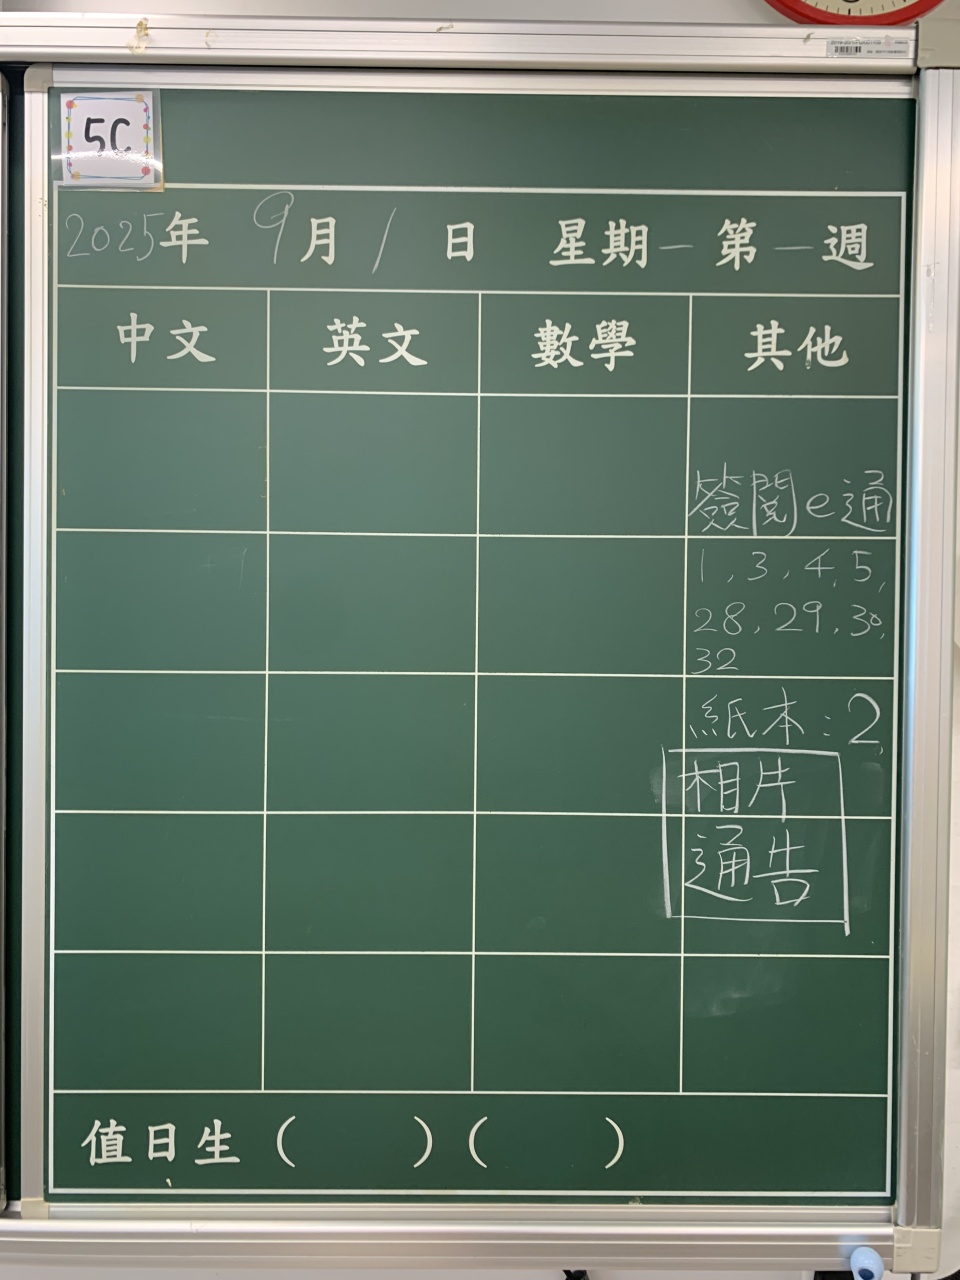 5C
2025年 9月1日 星期一 第一週
中文 英文 數學 其他
簽閱e通
1, 3, 4, 5,
28, 29, 30,
32
紙本:2,
相片
通告
值日生( )( )